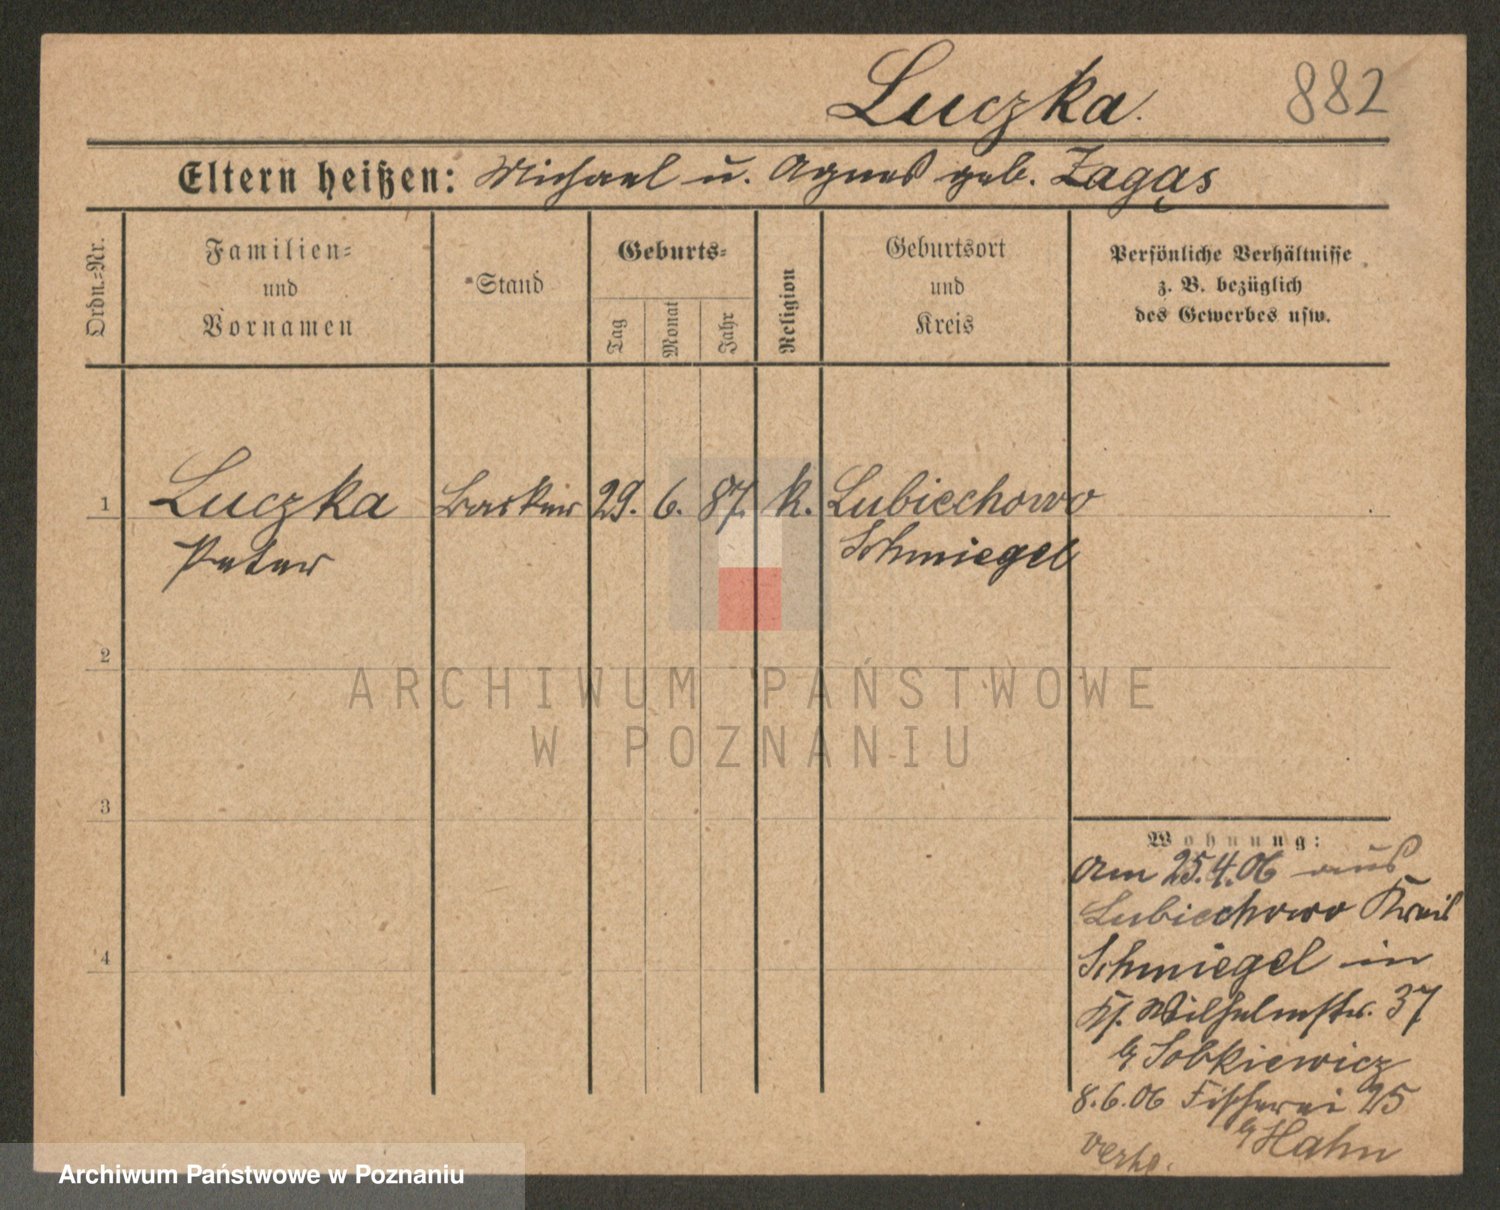 Luczka.
882
Eltern heißen: Michael u. Agnes geb. Zagąs
Ordn.-Nr.
Familien-
und
Vornamen
Stand
Geburts-
Tag
Monat
Jahr
Religion
Geburtsort
und
Kreis
Persönliche Verhältnisse
z. B. bezüglich
des Gewerbes usw.
1 Luczka 29. 6. 87. k. Lubiechowo
Peter Schmiegel
2
3
4
Wohnung:
Am 25.4.06 aus
Lubiechowo Kreis
Schmiegel in
Wilhelmstr. 37
b/ Sobkiewicz
8.6.06 Fischerei 25
b/ Hahn
ARCHIWUM PAŃSTWOWE
W POZNANIU
Archiwum Państwowe w Poznaniu